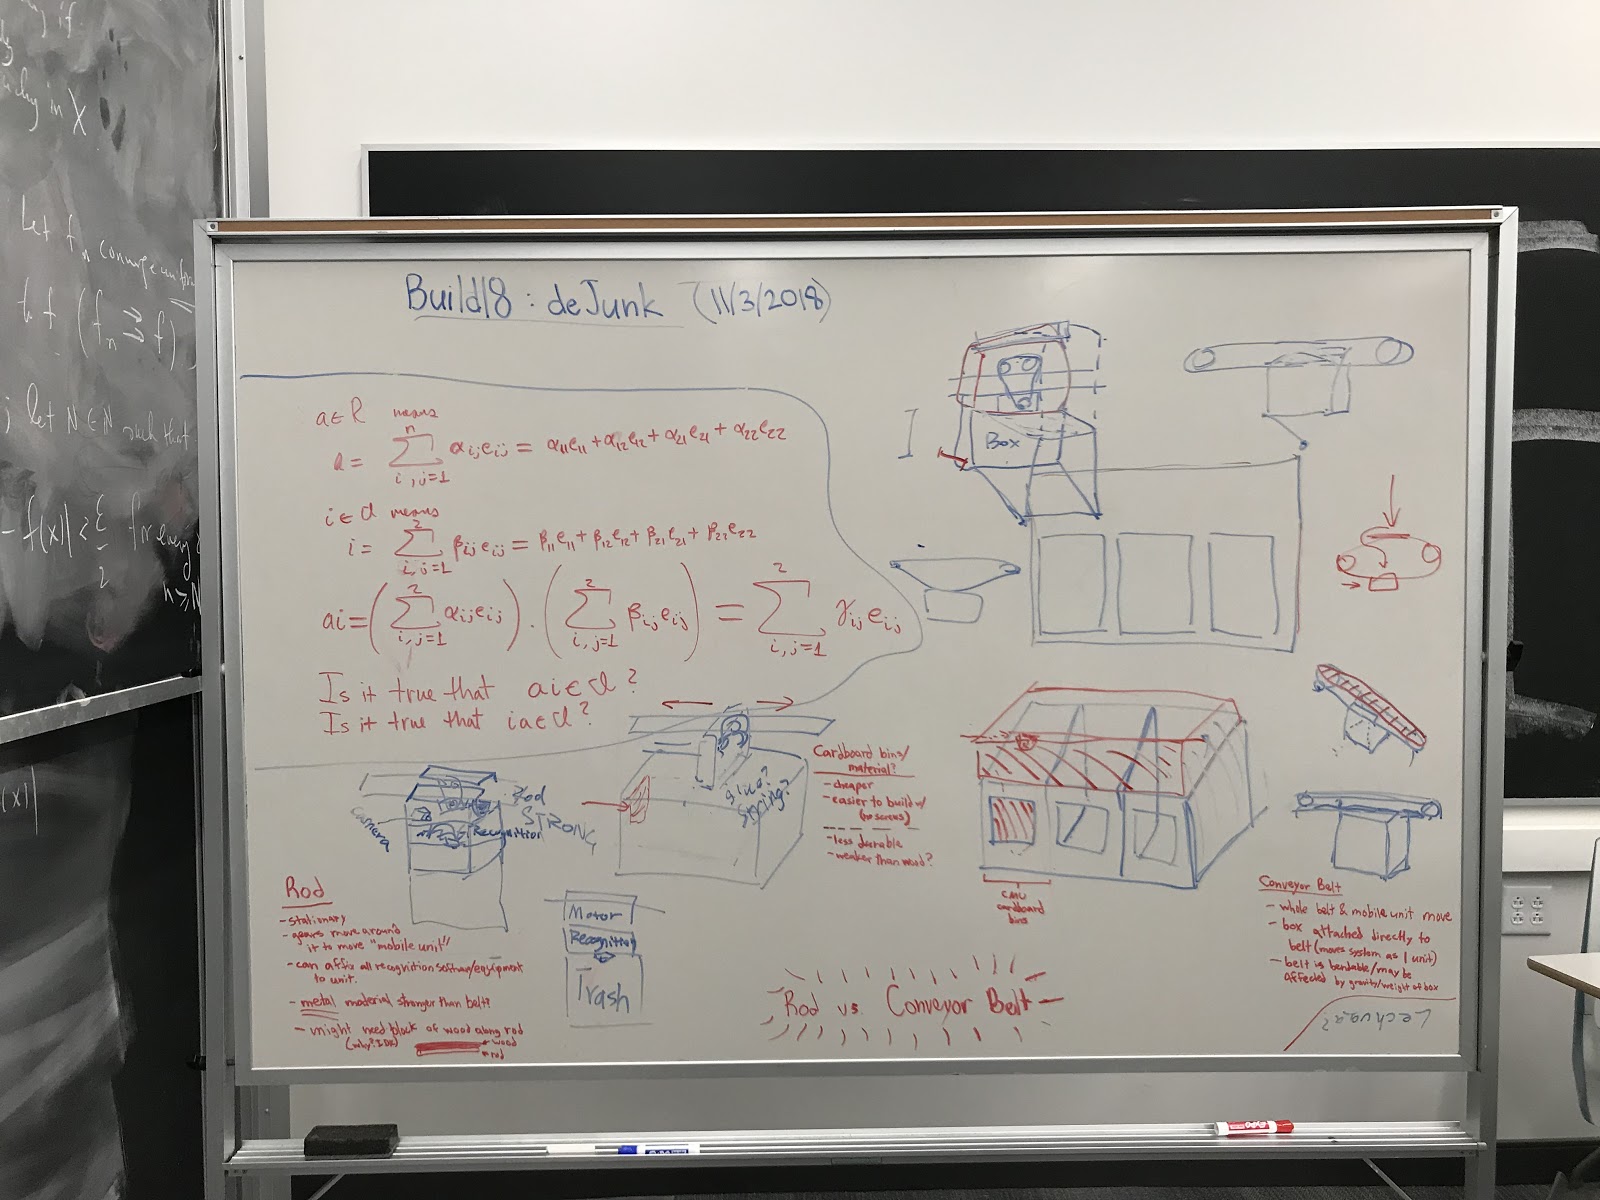 y in X
Let fn converge
to f (fn ⇉ f)
; let N ∈ N such that
- f(x)| < ε/2 for every
n ≥ N
(x)|
Build18: deJunk (11/3/2018)
a ∈ R means
a = Σ^n_{i,j=1} α_ij e_ij = α11e11 + α12e12 + α21e21 + α22e22
i ∈ I means
i = Σ^2_{i,j=1} β_ij e_ij = β11e11 + β12e12 + β21e21 + β22e22
ai = (Σ^2_{i,j=1} α_ij e_ij) · (Σ^2_{i,j=1} β_ij e_ij) = Σ^2_{i,j=1} γ_ij e_ij
Is it true that ai ∈ I?
Is it true that ia ∈ I?
Box
camera
Rod
STRONG
Recognition
String?
Cardboard bins/
material?
- cheaper
- easier to build w/
(no screws)
- less durable
- weaker than wood?
CMU
cardboard
bins
Rod
- stationary
- gears move around
it to move "mobile unit"
- can affix all recognition software/equipment
to unit.
- metal material stronger than belt?
- might need block of wood along rod
(why? IDK)
wood
rod
Motor
Recognition
Trash
Rod vs. Conveyor Belt
Conveyor Belt
- whole belt & mobile unit move
- box attached directly to
belt (moves system as 1 unit)
- belt is bendable/may be
affected by gravity/weight of box
Lechuga?
EXPO